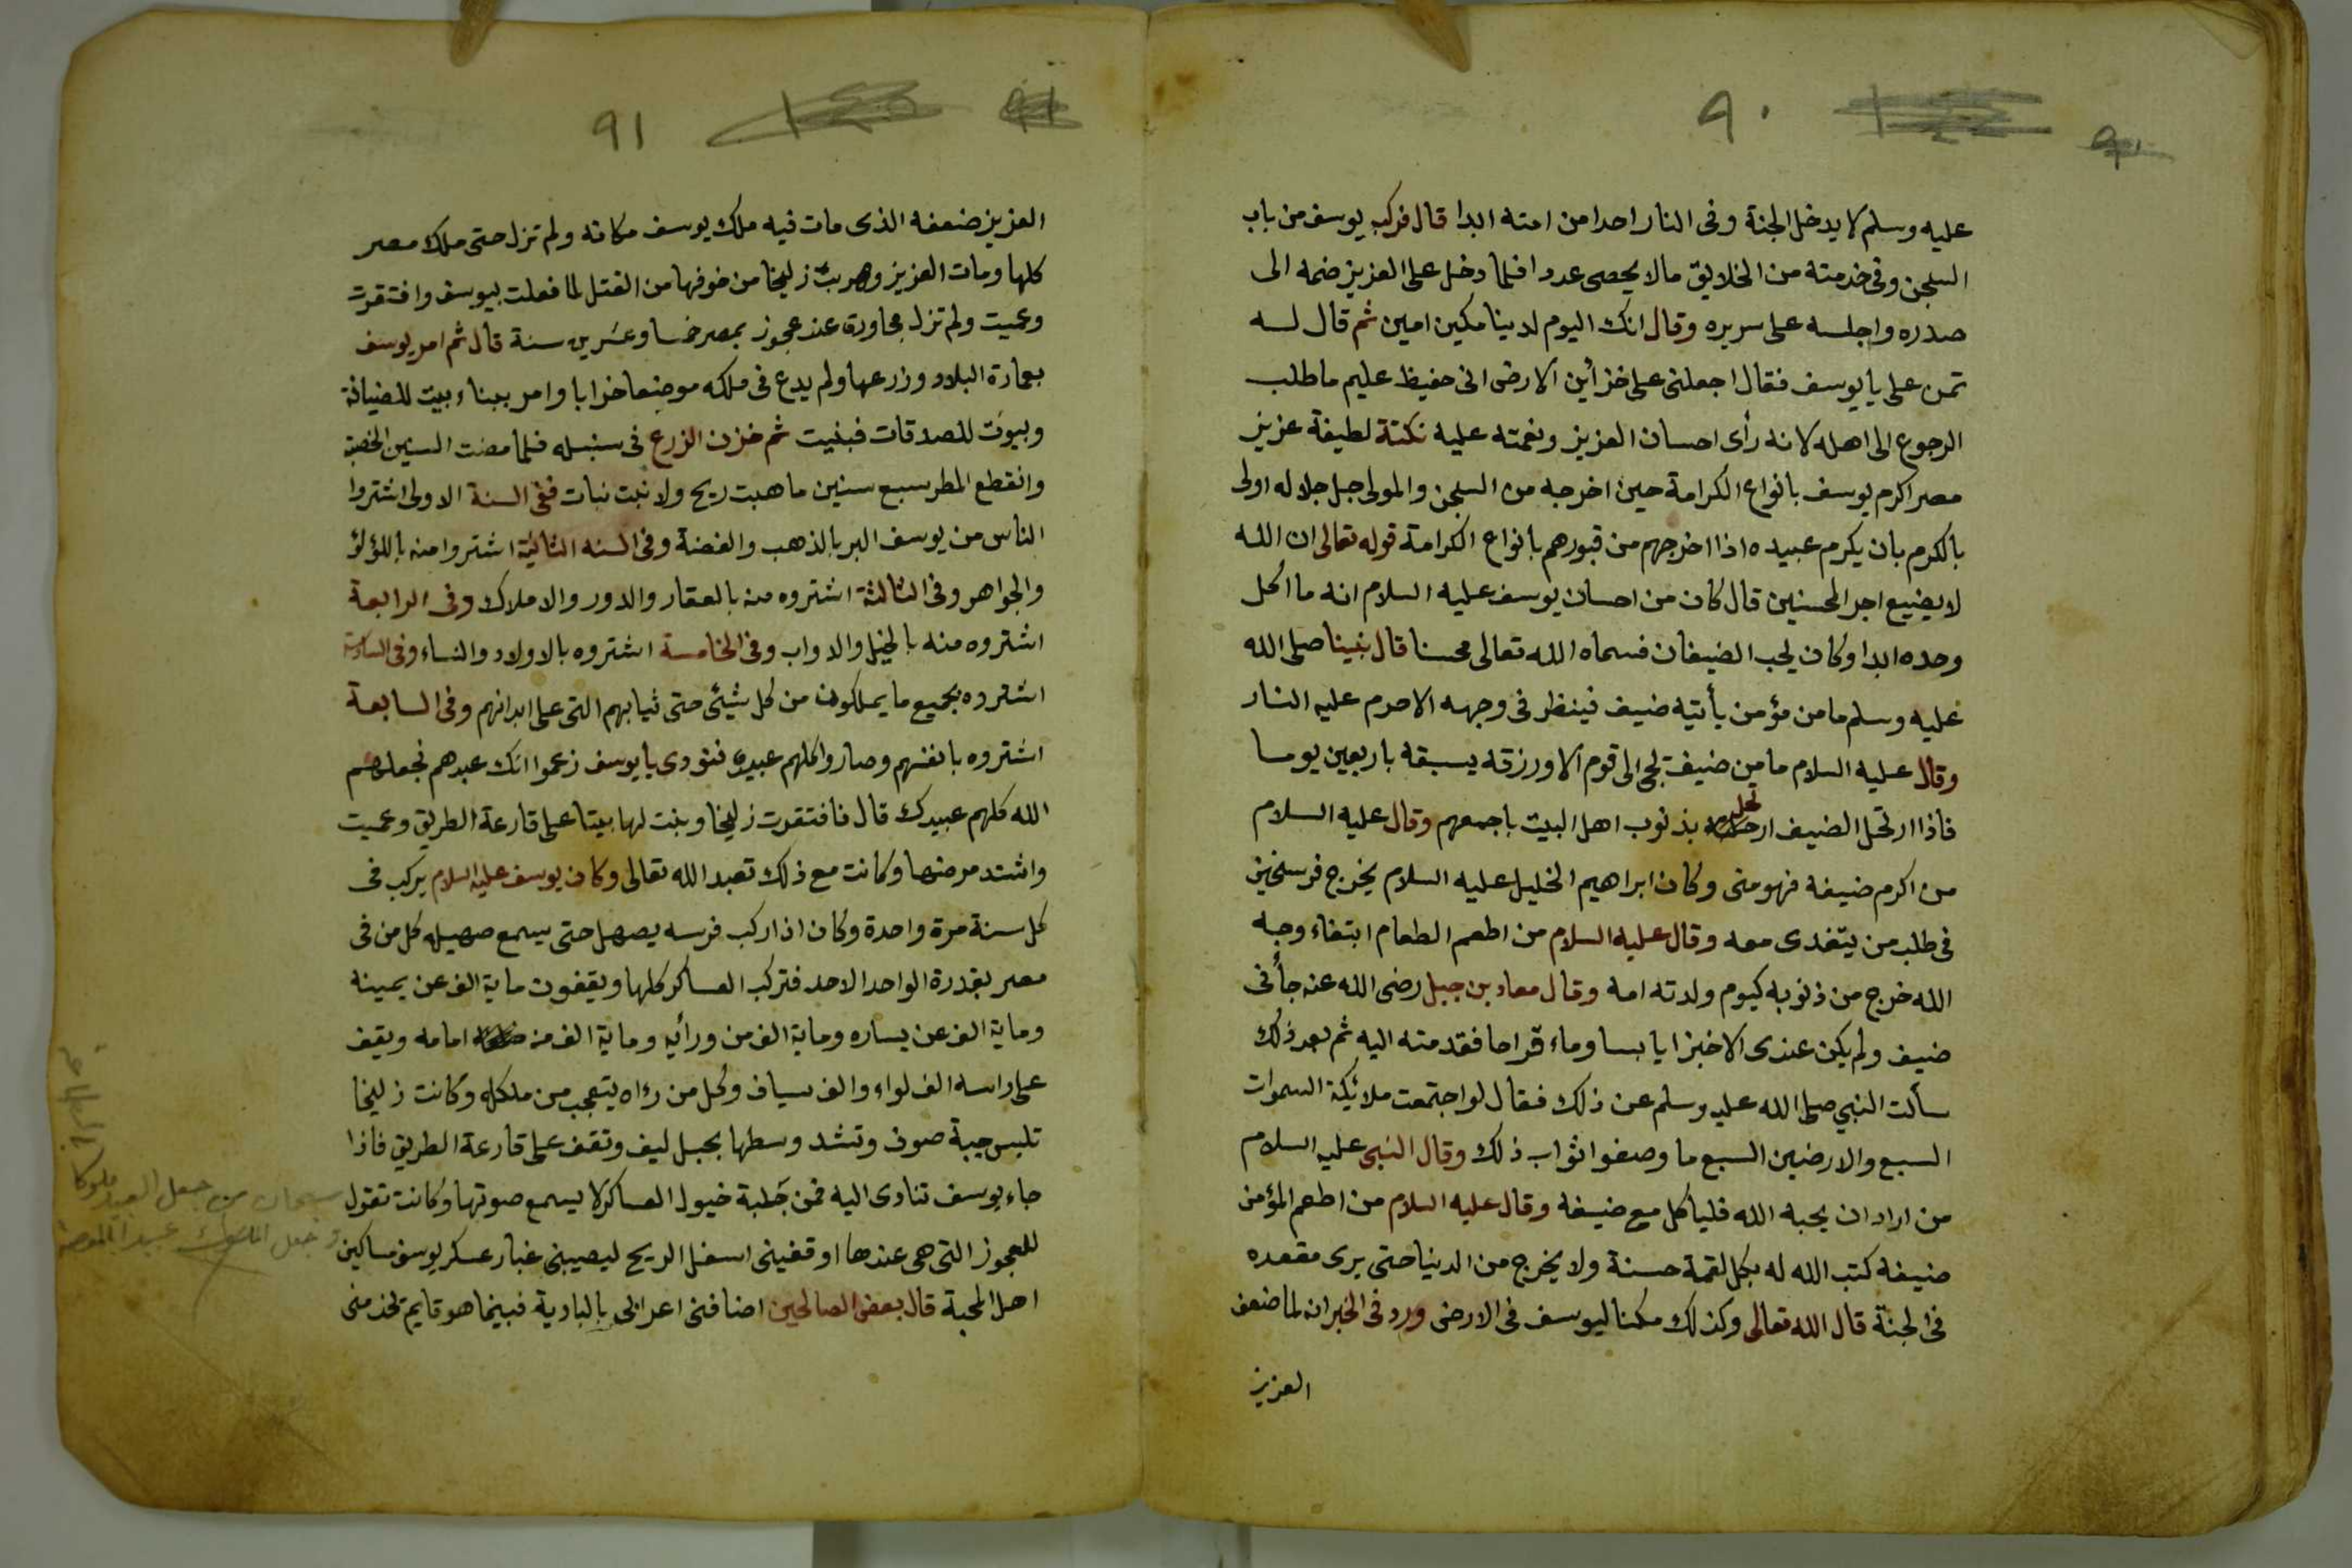 ٩٠
عليه وسلم لا يدخل الجنة وفى النار احدا من امته ابدا قال فركب يوسف من باب
السجن وفى خدمته من الخلايق مالا يحصى عددا فلما دخل على العزيز ضمه الى
صدره واجلسه على سريره وقال انك اليوم لدينا مكين امين ثم قال له
تمن على يا يوسف فقال اجعلنى على خزائن الارض انى حفيظ عليم ما طلب
الرجوع الى اهله لانه رأى احسان العزيز ونعمته عليه نكتة لطيفة عزيز
مصر اكرم يوسف بانواع الكرامة حين اخرجه من السجن والمولى جل جلاله اولى
بالكرم بان يكرم عبيده اذا اخرجهم من قبورهم بانواع الكرامة قوله تعالى ان الله
لا يضيع اجر المحسنين قال كان من احسان يوسف عليه السلام انه ما اكل
وحده ابدا وكان يحب الضيفان فسماه الله تعالى محسنا قال نبينا صلى الله
عليه وسلم ما من مؤمن يأتيه ضيف فينظر فى وجهه الا حرم عليه النار
وقال عليه السلام ما من ضيف يجى الى قوم الا ورزقه يسبقه باربعين يوما
فاذا ارتحل الضيف ارتحل بذنوب اهل البيت باجمعهم وقال عليه السلام
من اكرم ضيفه فهو منى وكان ابراهيم الخليل عليه السلام يخرج فرسخين
فى طلب من يتغدى معه وقال عليه السلام من اطعم الطعام ابتغاء وجه
الله خرج من ذنوبه كيوم ولدته امه وقال معاد بن جبل رضى الله عنه جأنى
ضيف ولم يكن عندى الا خبزا يابسا وماء قراحا فقدمته اليه ثم بعد ذلك
سألت النبي صلى الله عليه وسلم عن ذلك فقال لو اجتمعت ملائكة السموات
السبع والارضين السبع ما وصفوا ثواب ذلك وقال النبى عليه السلام
من اراد ان يحبه الله فلياكل مع ضيفه وقال عليه السلام من اطعم المؤمن
ضيفه كتب الله له بكل لقمة حسنة ولا يخرج من الدنيا حتى يرى مقعده
فى الجنة قال الله تعالى وكذلك مكنا ليوسف فى الارض ورد فى الخبر انه لما ضعف
العزيز
٩١
العزيز ضعفه الذى مات فيه ملك يوسف مكانه ولم تزل حتى ملك مصر
كلها ومات العزيز وهربت زليخا من خوفها من القتل لما فعلت بيوسف وافتقرت
وعميت ولم تزل مجاورة عند عجوز بمصر خمسا وعشرين سنة قال ثم امر يوسف
بعمارة البلاد وزرعها ولم يدع فى ملكه موضعا خرابا وامر ببناء بيت للضيافة
وبيوت للصدقات فبنيت ثم خزن الزرع فى سنبله فلما مضت السنين الخصبة
وانقطع المطر سبع سنين ما هبت ريح ولا نبت نبات ففى السنة الاولى اشتروا
الناس من يوسف البر بالذهب والفضة وفى السنه الثانية اشتروا منه باللؤلؤ
والجواهر وفى الثالثة اشتروه منه بالعقار والدور والاملاك وفى الرابعة
اشتروه منه بالخيل والدواب وفى الخامسة اشتروه بالاولاد والنساء وفى السادسة
اشتروه بجميع ما يملكون من كل شيئى حتى ثيابهم التى على ابدانهم وفى السابعة
اشتروه بانفسهم وصاروا كلهم عبيده فنودى يا يوسف زعموا انك عبدهم فجعلهم
الله كلهم عبيدك قال فافتقرت زليخا وبنت لها بيتا على قارعة الطريق وعميت
واشتد مرضها وكانت مع ذلك تعبد الله تعالى وكان يوسف عليه السلام يركب فى
كل سنة مرة واحدة وكان اذا ركب فرسه يصهل حتى يسمع صهيله كل من فى
مصر بقدرة الواحد الاحد فتركب العساكر كلها ويقفون ماية الف عن يمينه
وماية الف عن يساره وماية الف من ورأيه وماية الف من امامه ويقف
على راسه الف لواء والف سياف وكل من رءاه يتعجب من ملكه وكانت زليخا
تلبس جبة صوف وتشد وسطها بحبل ليف وتقف على قارعة الطريق فاذا
جاء يوسف تنادى اليه فمن جلبة خيول العساكر لا يسمع صوتها وكانت تقول
للعجوز التى هى عندها اوقفينى اسفل الريح ليصيبنى غبار عسكر يوسف مساكين
اهل المحبة قال بعض الصالحين اضافنى اعرابى بالبادية فبينما هو قايم يخدمنى
سبحان من جعل العبيد ملوكا
وجعل الملوك عبيدا